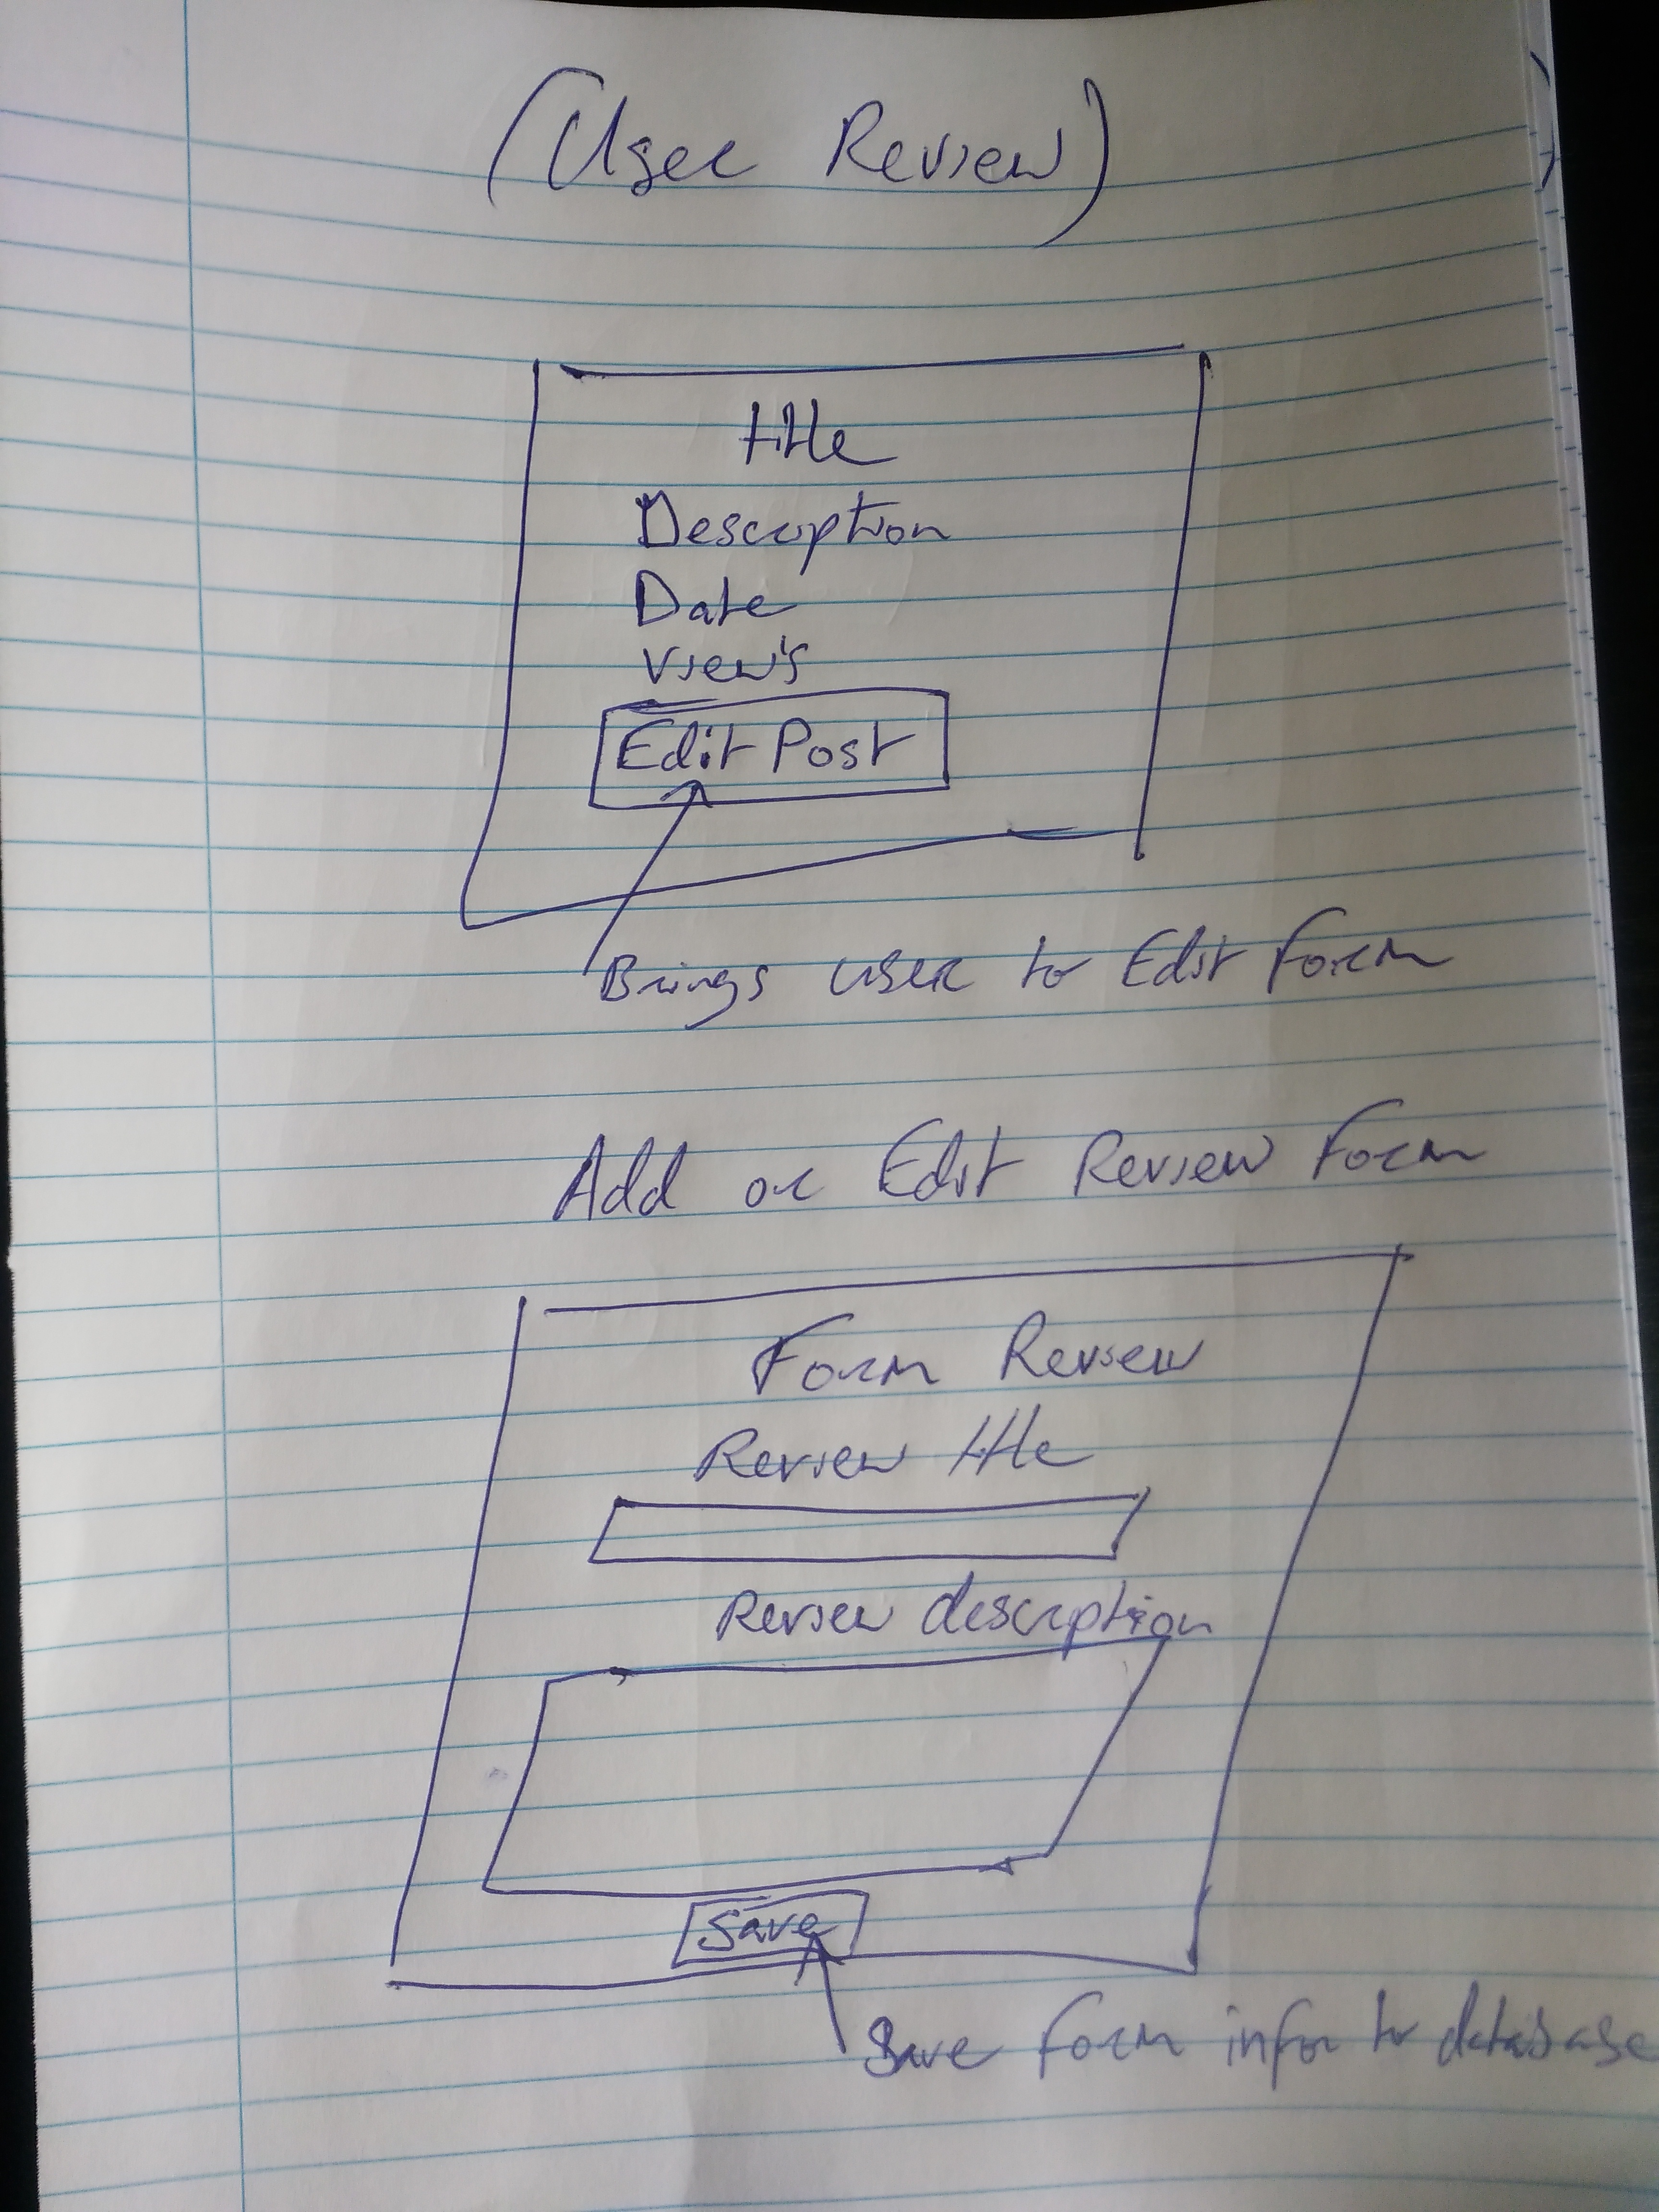 (User Review)
title
Description
Date
View's
Edit Post
Brings user to Edit Form
Add or Edit Review Form
Form Review
Review title
Review description
Save
Save Form infor to database